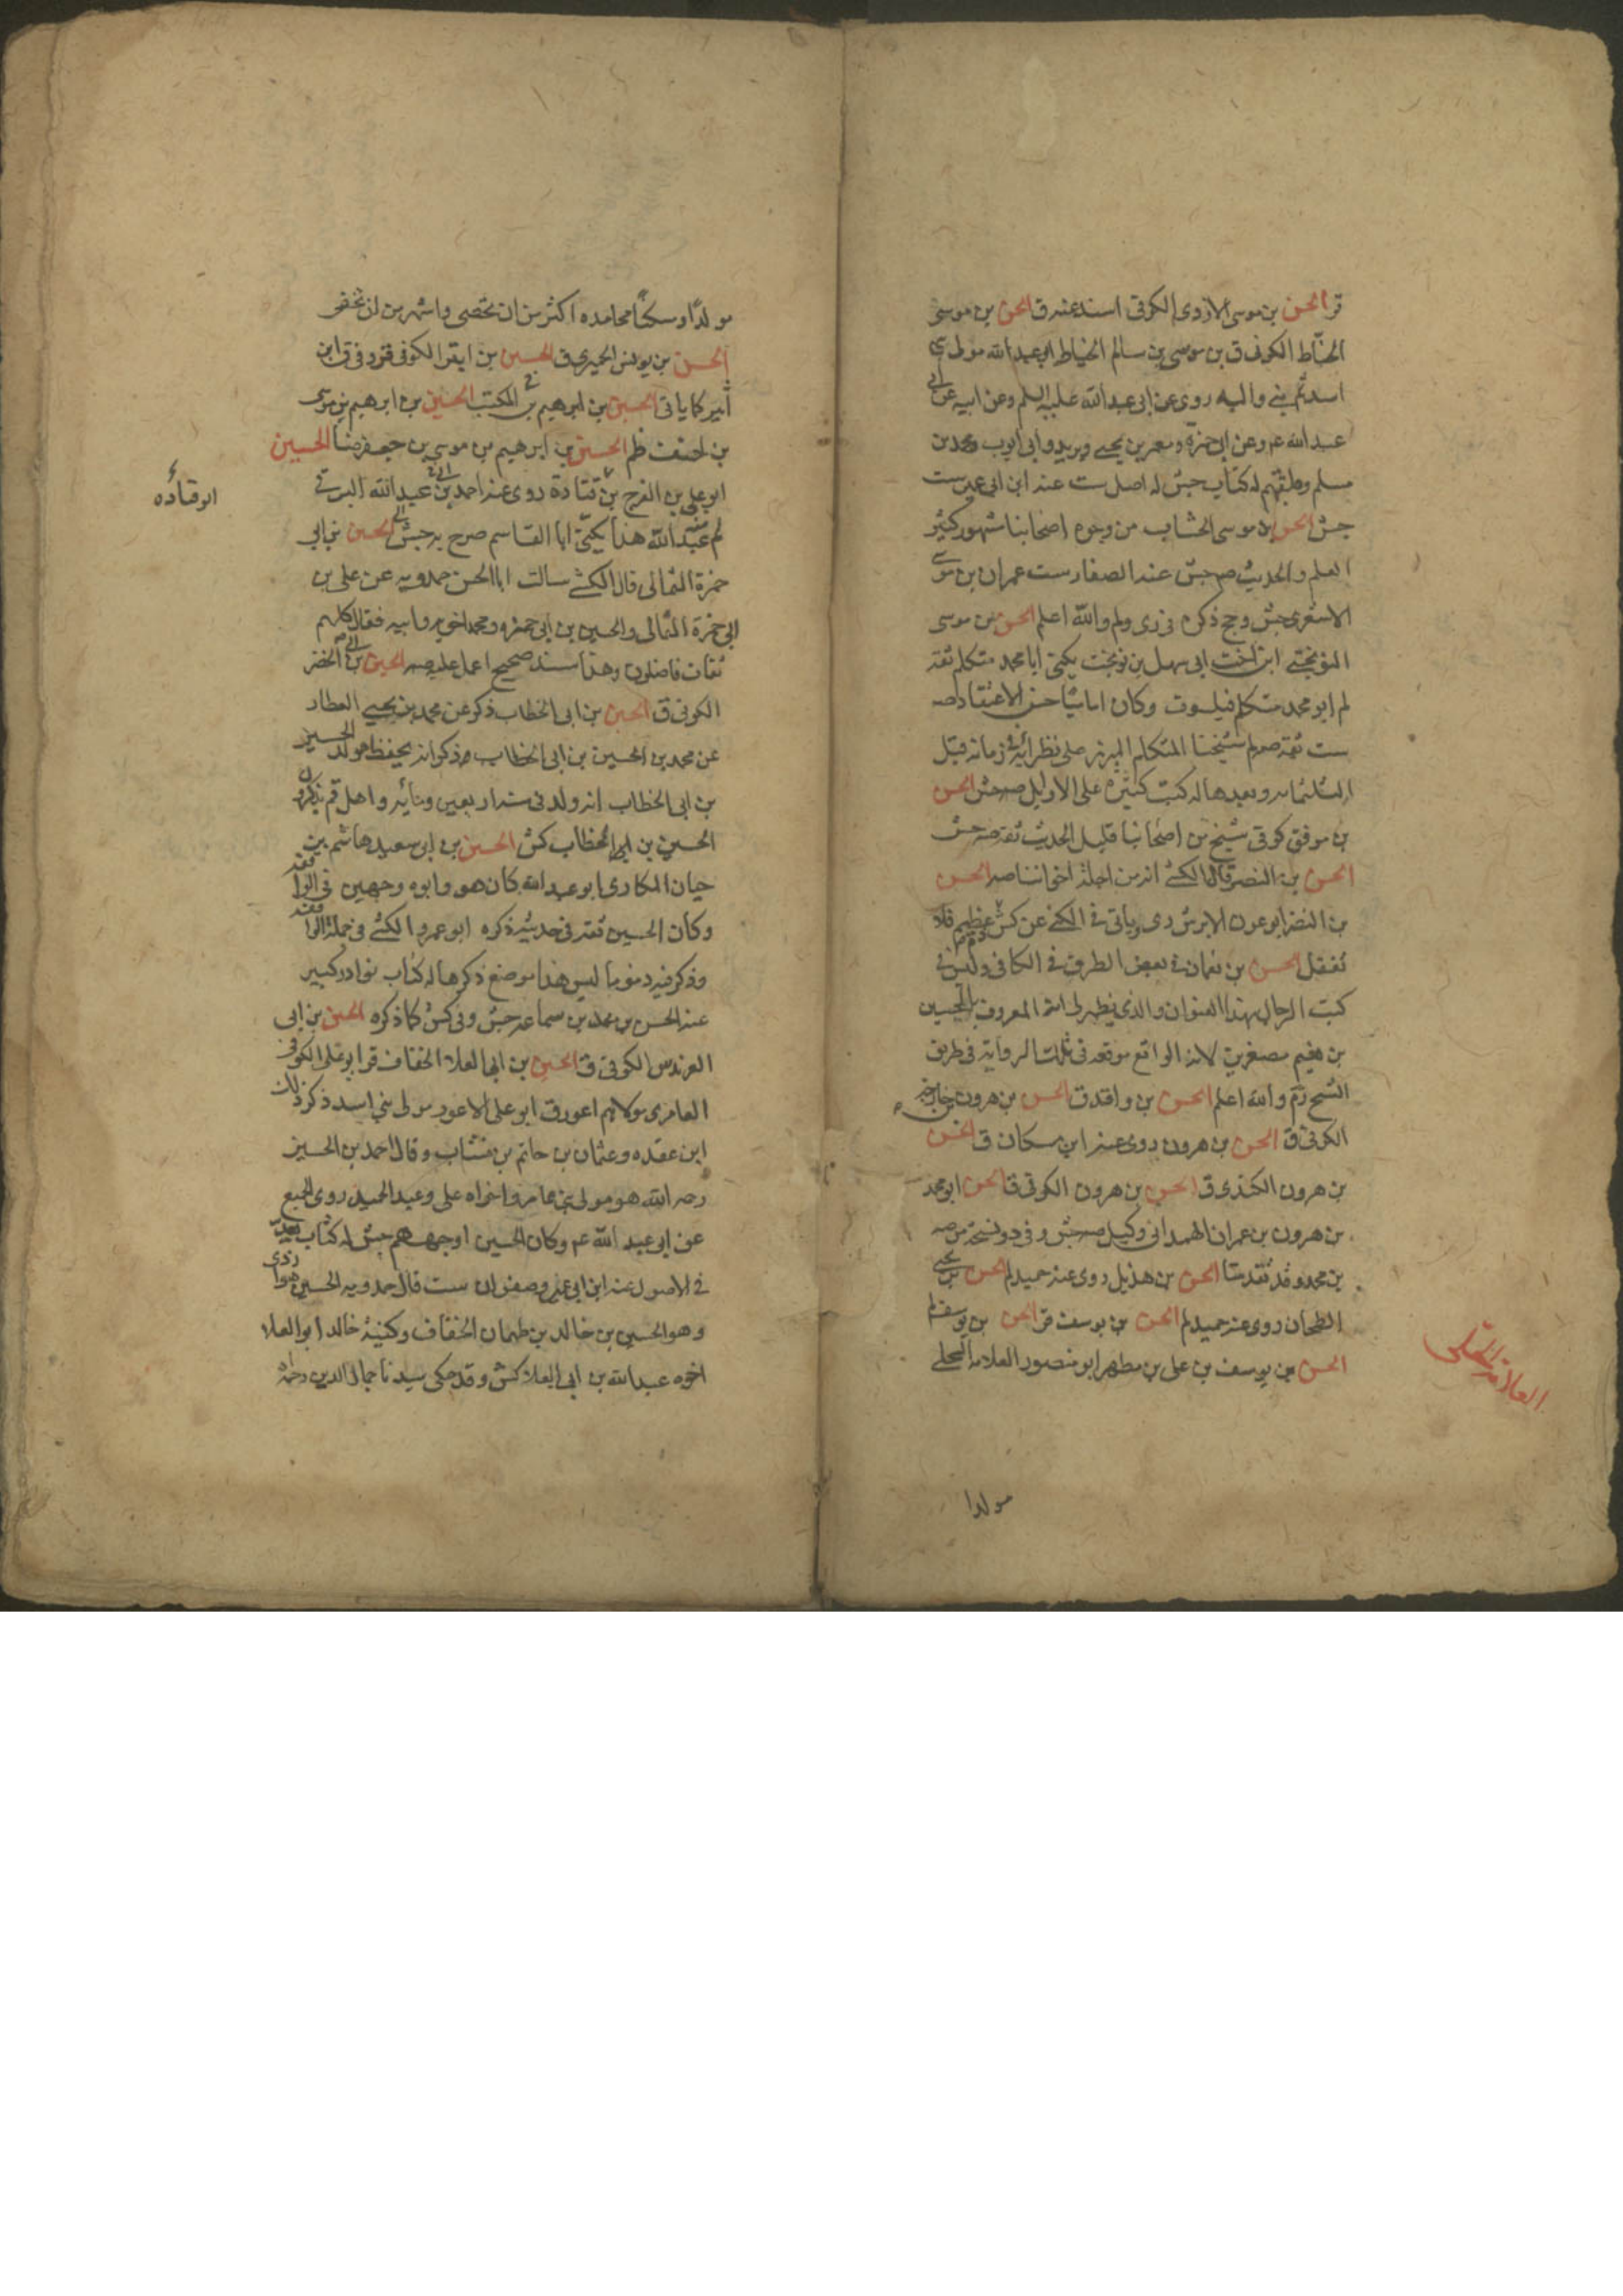 قر الحسن بن موسى الازدى الكوفى اسند عنه ق الحسن بن موسى
الحناط الكوفى ق بن موسى بن سالم الخياط ابو عبد الله مولى بنى
اسد ثم بنى والبه روى عن ابى عبد الله عليه السلم وعن ابيه عن ابى
عبد الله عم وعن ابى حمزة ومعمر بن يحيى وبريد وابى ايوب ومحمد بن
مسلم وطبقتهم له كتاب جش له اصل ست عنه ابن ابى عمير ست
جش الحسن بن موسى الخشاب من وجوه اصحابنا مشهور كثير
العلم والحديث صه جش عنه الصفار ست عمران بن موسى
الاشعرى جش وجخ ذكره فى رى ولم والله اعلم الحسن بن موسى
النوبختى ابن اخت ابى سهل بن نوبخت يكنى ابا محمد متكلم ثقة
لم ابو محمد متكلم فيلسوف وكان اماميا حسن الاعتقاد صه
ست ثقة صه لم شيخنا المتكلم المبرز على نظرائه فى زمانه قبل
الثلثمائه وبعدها له كتب كثيرة على الاوايل صه جش الحسن
بن موفق كوفى شيخ من اصحابنا قليل الحديث ثقة صه جش
الحسن بن النصر قال الكشى انه من اجلة اخواننا صه الحسن
بن النضر ابو عون الابرش رى وياتى فى الكنى عن كش عظيم فلا
تغفل الحسن بن نعمان فى بعض الطرق فى الكافى وليس فى
كتب الرجال بهذا العنوان والذى يظهر لى انه المعروف بالحسين
بن نعيم مصغرين لانه الواقع موقعه فى تلك الرواية فى طريق
الشيخ ره والله اعلم الحسن بن واقد ق الحسن بن هرون بن خارجه
الكوفى ق الحسن بن هرون روى عنه ابن مسكان ق الحسن
بن هرون الكندى ق الحسن بن هرون الكوفى ق الحسن ابو محمد
بن هرون بن عمران الهمدانى وكيل صه جش وفى د ونسخة من صه
بن محمد وقد تقدمتا الحسن بن هذيل روى عنه حميد لم الحسن بن يحيى
الطحان روى عنه حميد لم الحسن بن يوسف قر الحسن بن يوسف ظم
الحسن بن يوسف بن على بن مطهر ابو منصور العلامة الحلى
العلامة الحلى
مولدا
مولدا وسكنا محامده اكثر من ان تحصى واشهر من ان تخفى
الحسن بن يونس الحميرى ق الحسين بن ابتر الكوفى قر د وفى ق ابن
اثير كما ياتى الحسين بن ابرهيم بن المكتب الحسين بن ابرهيم بن موسى
بن احنف ظم الحسين بن ابرهيم بن موسى بن جعفر ضا الحسين
ابو على بن الفرج بن قتادة روى عنه احمد بن ابى عبد الله البرقى
ابو قتاده
لم عبد الله هذا يكنى ابا القاسم صرح به جش الحسين بن ابى
حمزة الثمالى قال الكشى سالت ابا الحسن حمدويه عن على بن
ابى حمزة الثمالى والحسين بن ابى حمزه ومحمد اخويه وابيه فقال كلهم
ثقات فاضلون وهذا سند صحيح اعمل عليه صه الحسين بن ابى الخضر
الكوفى ق الحسين بن ابى الخطاب ذكر عن محمد بن يحيى العطار
عن محمد بن الحسين بن ابى الخطاب وذكر انه يحفظ مولد الحسين
بن ابى الخطاب انه ولد فى سنة اربعين ومائه واهل قم يذكرون
الحسين بن ابى الخطاب كش الحسين بن ابى سعيد هاشم بن
حيان المكارى ابو عبد الله كان هو وابوه وجهين فى الواقفه
وكان الحسين ثقة فى حديثه ذكره ابو عمرو الكشى فى جملة الواقفه
وذكر فيه ذموما ليس هذا موضع ذكرها له كتاب نوادر كبير
عنه الحسن بن محمد بن سماعة جش وفى كش كما ذكره الحسين بن ابى
العرندس الكوفى ق الحسين بن ابى العلاء الخفاف قر ابو على الكوفى
العامرى مولاهم اعور ق ابو على الاعور مولى بنى اسد ذكر ذلك
ابن عقده وعثمان بن حاتم بن منتاب وقال احمد بن الحسين
رحمه الله هو مولى بنى عامر واخواه على وعبد الحميد روى الجميع
عن ابى عبد الله عم وكان الحسين اوجههم جش له كتاب يعد
فى الاصول عنه ابن ابى عمير وصفوان ست قال حمدويه الحسين هو ازدى
وهو الحسين بن خالد بن طهمان الخفاف وكنية خالد ابو العلا
اخوه عبد الله بن ابى العلا كش وقد حكى سيدنا جمال الدين رحمه